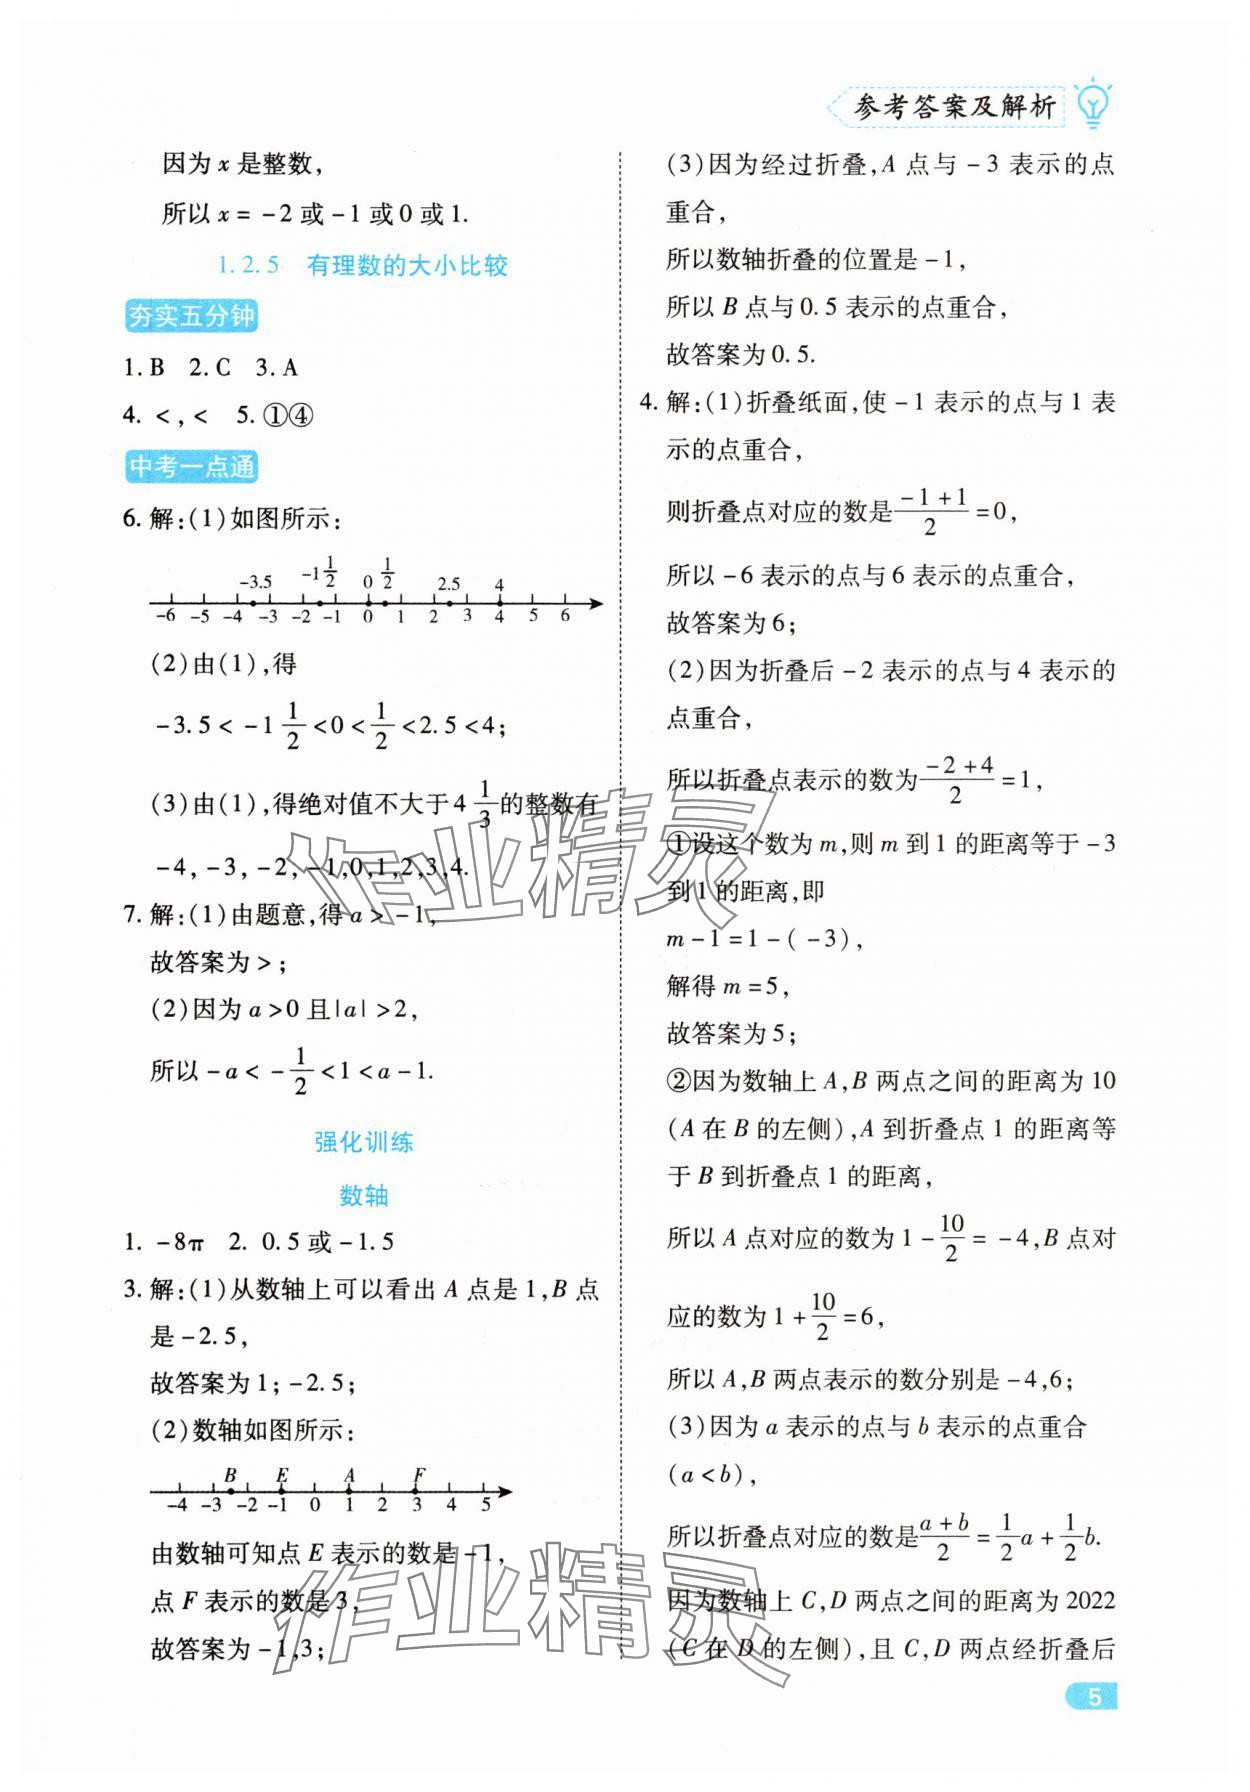 参考答案及解析
因为x是整数,
所以x=-2或-1或0或1.
1.2.5 有理数的大小比较
夯实五分钟
1.B 2.C 3.A
4. <,< 5.①④
中考一点通
6.解:(1)如图所示:
-3.5 -1 1/2 0 1/2 2.5 4
-6 -5 -4 -3 -2 -1 0 1 2 3 4 5 6
(2)由(1),得
-3.5<-1 1/2<0<1/2<2.5<4;
(3)由(1),得绝对值不大于4 1/3的整数有
-4,-3,-2,-1,0,1,2,3,4.
7.解:(1)由题意,得a>-1,
故答案为>;
(2)因为a>0且|a|>2,
所以-a<-1/2<1<a-1.
强化训练
数轴
1. -8π 2. 0.5或-1.5
3.解:(1)从数轴上可以看出A点是1,B点
是-2.5,
故答案为1;-2.5;
(2)数轴如图所示:
B E A F
-4 -3 -2 -1 0 1 2 3 4 5
由数轴可知点E表示的数是-1,
点F表示的数是3,
故答案为-1,3;
(3)因为经过折叠,A点与-3表示的点
重合,
所以数轴折叠的位置是-1,
所以B点与0.5表示的点重合,
故答案为0.5.
4.解:(1)折叠纸面,使-1表示的点与1表
示的点重合,
则折叠点对应的数是(-1+1)/2=0,
所以-6表示的点与6表示的点重合,
故答案为6;
(2)因为折叠后-2表示的点与4表示的
点重合,
所以折叠点表示的数为(-2+4)/2=1,
①设这个数为m,则m到1的距离等于-3
到1的距离,即
m-1=1-(-3),
解得m=5,
故答案为5;
②因为数轴上A,B两点之间的距离为10
(A在B的左侧),A到折叠点1的距离等
于B到折叠点1的距离,
所以A点对应的数为1-10/2=-4,B点对
应的数为1+10/2=6,
所以A,B两点表示的数分别是-4,6;
(3)因为a表示的点与b表示的点重合
(a<b),
所以折叠点对应的数是(a+b)/2=1/2a+1/2b.
因为数轴上C,D两点之间的距离为2022
(C在D的左侧),且C,D两点经折叠后
5
作业精灵
作业精灵